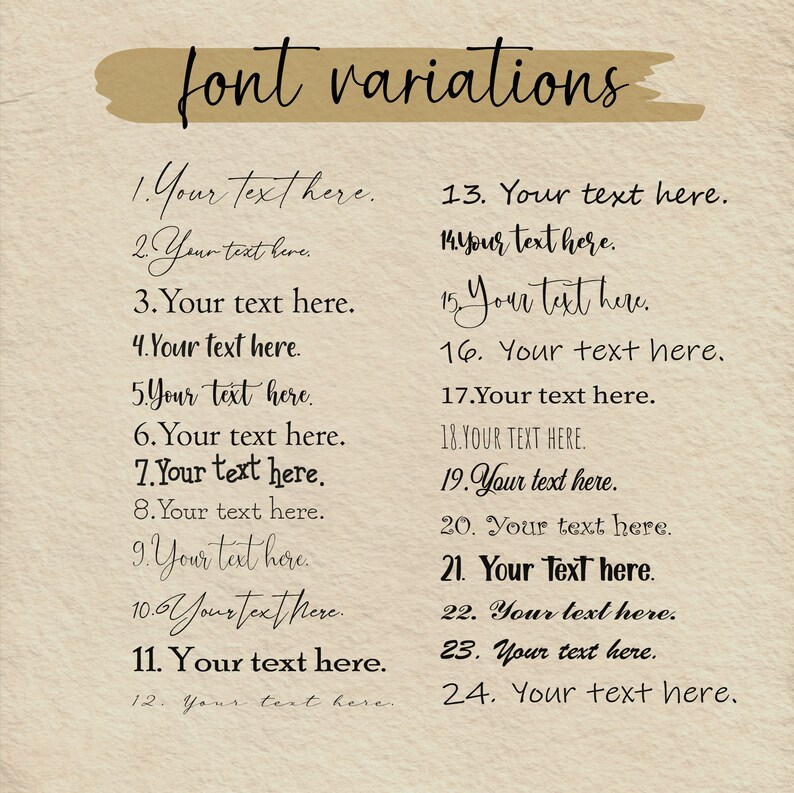 font variations
1.Your text here.
2.Your text here.
3.Your text here.
4.Your text here.
5.Your text here.
6.Your text here.
7.Your text here.
8.Your text here.
9.Your text here.
10.Your text here.
11. Your text here.
12. Your text here.
13. Your text here.
14.Your text here.
15.Your text here.
16. Your text here.
17.Your text here.
18.YOUR TEXT HERE.
19.Your text here.
20. Your text here.
21. Your text here.
22. Your text here.
23. Your text here.
24. Your text here.